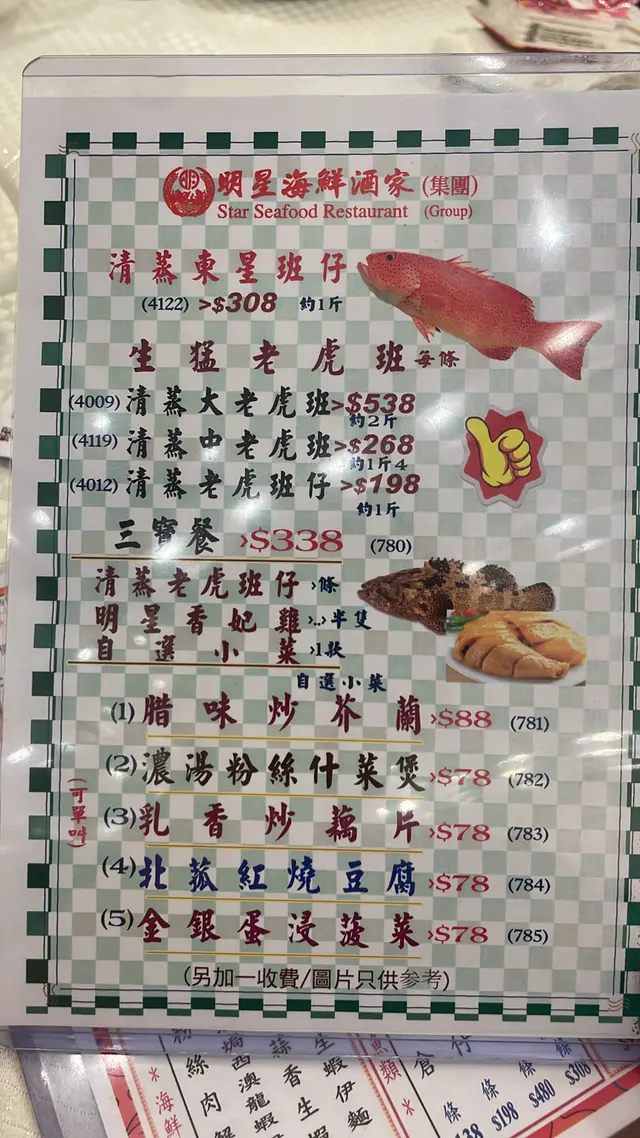 明星海鮮酒家(集團)
Star Seafood Restaurant (Group)
清蒸東星班仔
(4122) >$308 約1斤
生猛老虎班 每條
(4009) 清蒸大老虎班>$538
約2斤
(4119) 清蒸中老虎班>$268
約1斤4
(4012) 清蒸老虎班仔>$198
約1斤
三寶餐 >$338 (780)
清蒸老虎班仔>條
明星香妃雞>...>半隻
自選小菜>1款
自選小菜
(可單叫)
(1) 腊味炒芥蘭>$88 (781)
(2) 濃湯粉絲什菜煲>$78 (782)
(3) 乳香炒藕片>$78 (783)
(4) 北菰紅燒豆腐>$78 (784)
(5) 金銀蛋浸菠菜>$78 (785)
(另加一收費/圖片只供參考)
*海鮮
絲肉蟹
焗西澳龍蝦
蒜香生蝦
生蝦伊麵
類*
倉
條 $198
條 $480
條 $308